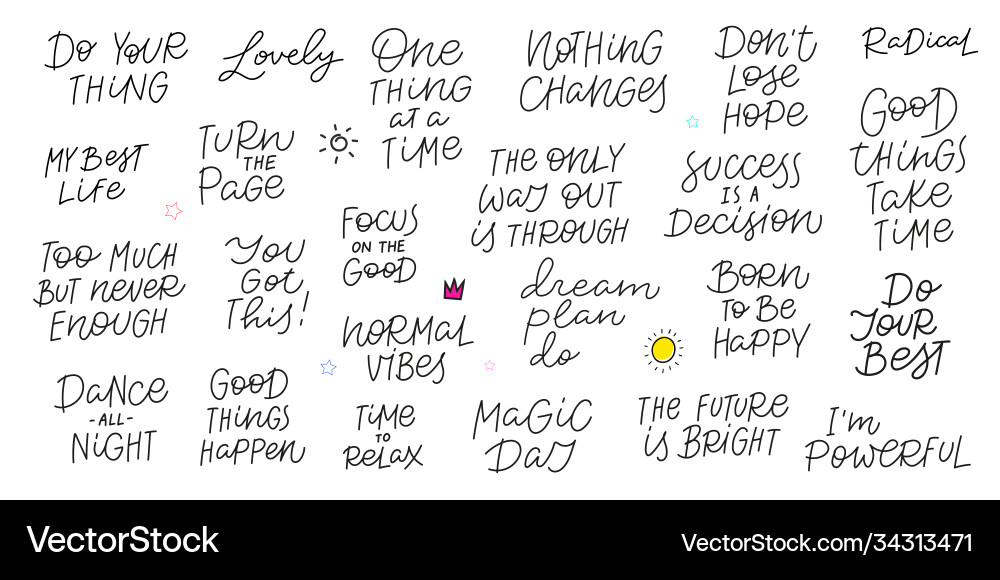 Do YOUR
THING
Lovely
One
THING
aT a
TiME
NOTHiNG
CHaNGES
DON'T
LOSE
HOPE
RaDicaL
MY BEST
LiFE
TURN
THE
PaGE
THE ONLY
WaY OUT
iS THROUGH
SUCCESS
IS A
Decision
GOOD
tHiNGS
TaKE
TiME
TOO MUCH
BUT NEVER
ENOUGH
You
Got
This!
FOCUS
ON THE
GOOD
NORMaL
ViBES
dream
plan
do
BORN
TO BE
HaPPY
Do
YOUR
BEST
DaNce
-ALL-
NiGHT
GOOD
THiNGS
HaPPEN
TiME
TO
RELaX
MaGiC
DaY
THE FUTURE
iS BRiGHT
I'm
POWERFUL
VectorStock
VectorStock.com/34313471